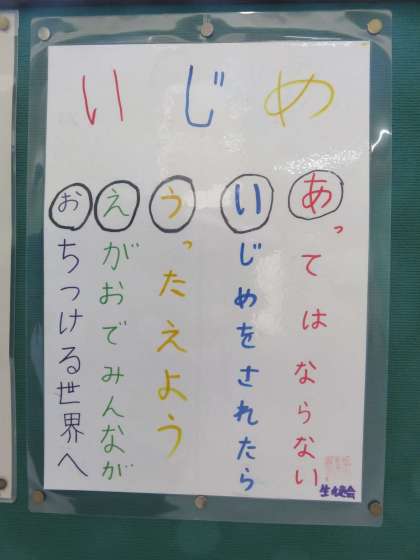 いじめ
あってはならない
いじめをされたら
うったえよう
えがおでみんなが
おちつける世界へ
生徒会